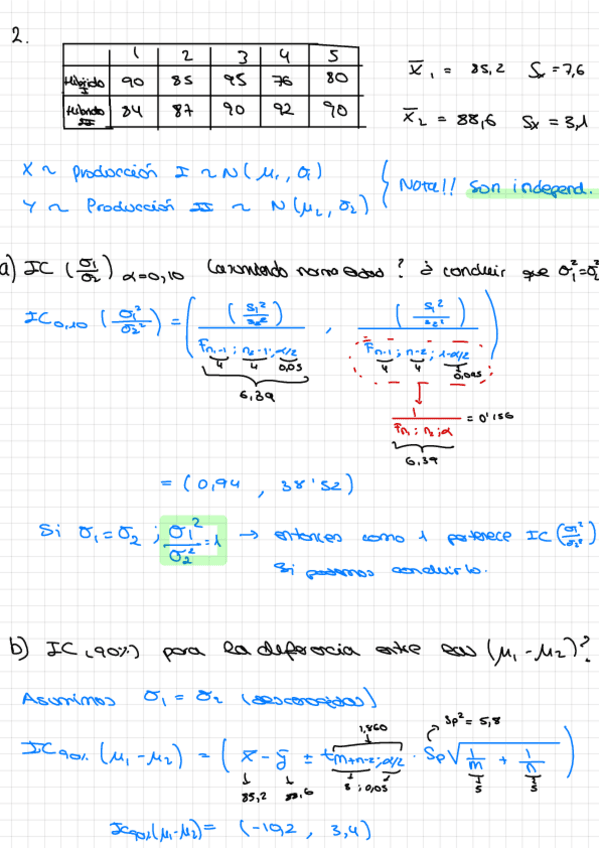 2.
1 2 3 4 5
Híbrido I 90 85 95 76 80
Híbrido II 84 87 90 92 90
x̄₁ = 85,2 Sx = 7,6
x̄₂ = 88,6 Sx = 3,1
X ~ Producción I ~ N(μ₁, σ₁)
Y ~ Producción II ~ N(μ₂, σ₂)
Nota!! Son independ.
a) IC (σ₁/σ₂) α=0,10 ? conducir que σ₁²=σ₂²
IC₀,₁₀ (σ₁²/σ₂²) = ( (s₁²/s₂²) / F n-1; n₂-1; α/2 , (s₁²/s₂²) / F n-1; n-2; 1-α/2 )
4 4 0,05
4 4 0,095
6,39
1 / F n₁; n₂; α = 0'156
6,39
= (0,94 , 38'52)
Si σ₁=σ₂ ; σ₁²/σ₂² = 1 → entonces como 1 pertenece IC (σ₁²/σ₂²)
Si podemos conducirlo.
b) IC (90%) para la diferencia entre las (μ₁-μ₂)?
Asumimos σ₁ = σ₂ (desconocidas)
1,860 Sp² = 5,8
IC90% (μ₁-μ₂) = ( x̄ - ȳ ± t m+n-2; α/2 · Sp √ 1/m + 1/n )
85,2 88,6 8 ; 0,05 5 5
IC90% (μ₁-μ₂) = (-10,2 , 3,4)